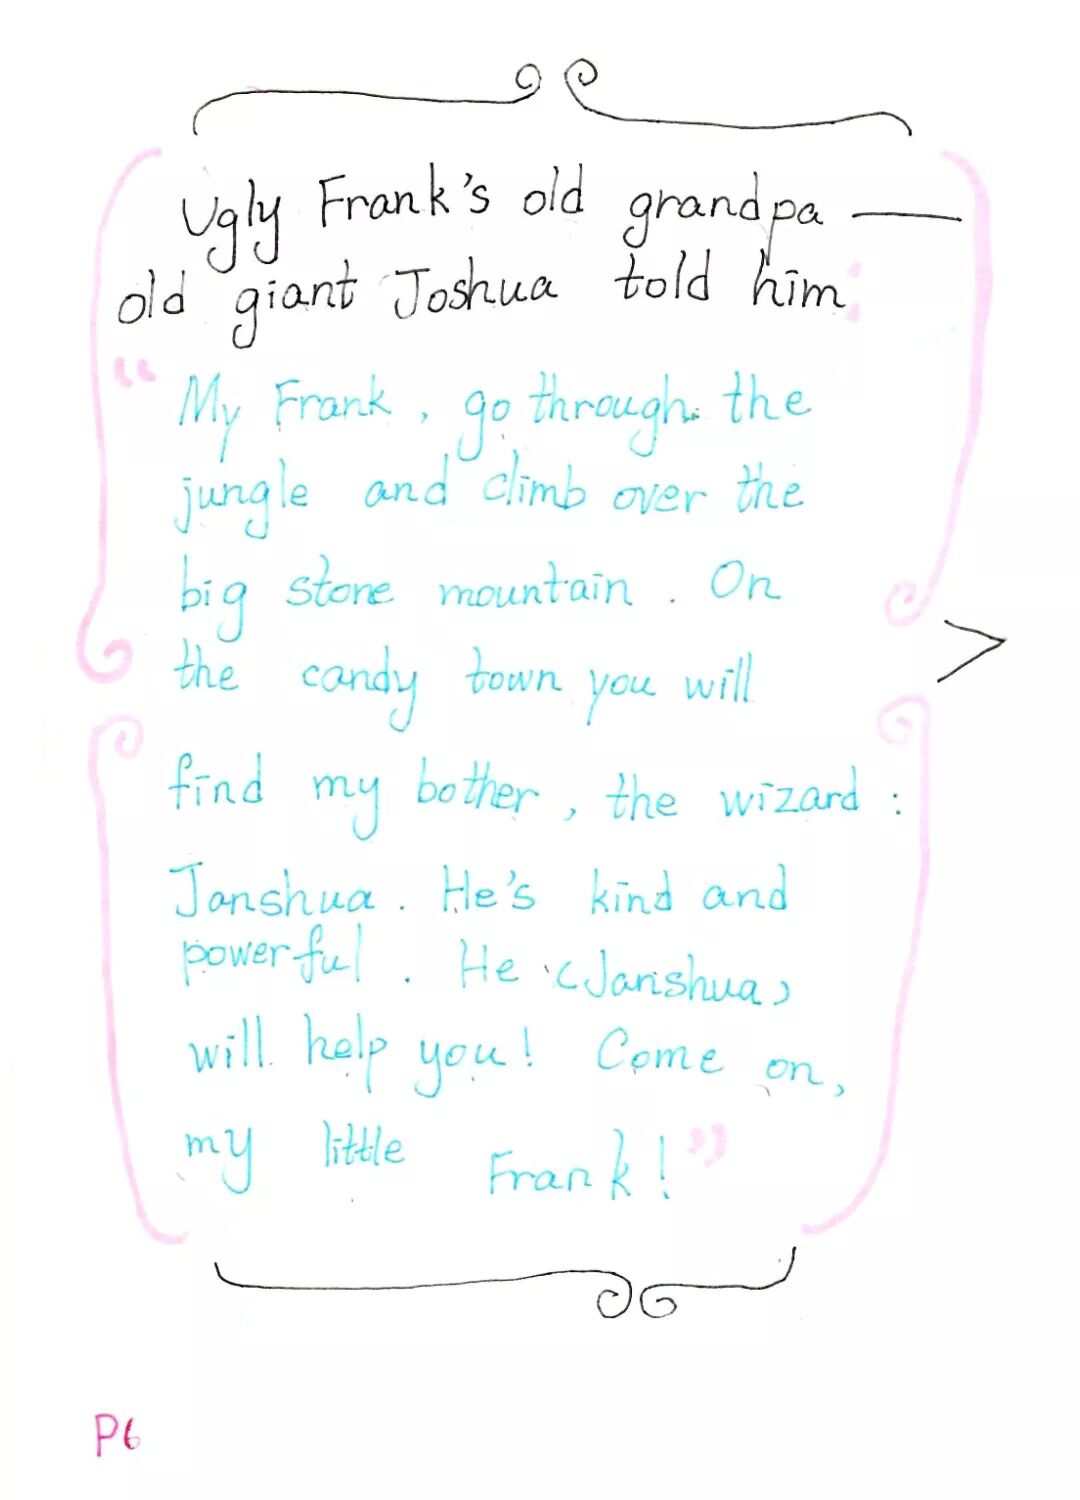 Ugly Frank's old grandpa —
old giant Joshua told him:
“My Frank, go through the
jungle and climb over the
big stone mountain. On
the candy town you will
find my bother, the wizard:
Janshua. He's kind and
powerful. He (Janshua)
will help you! Come on,
my little Frank!”
P6